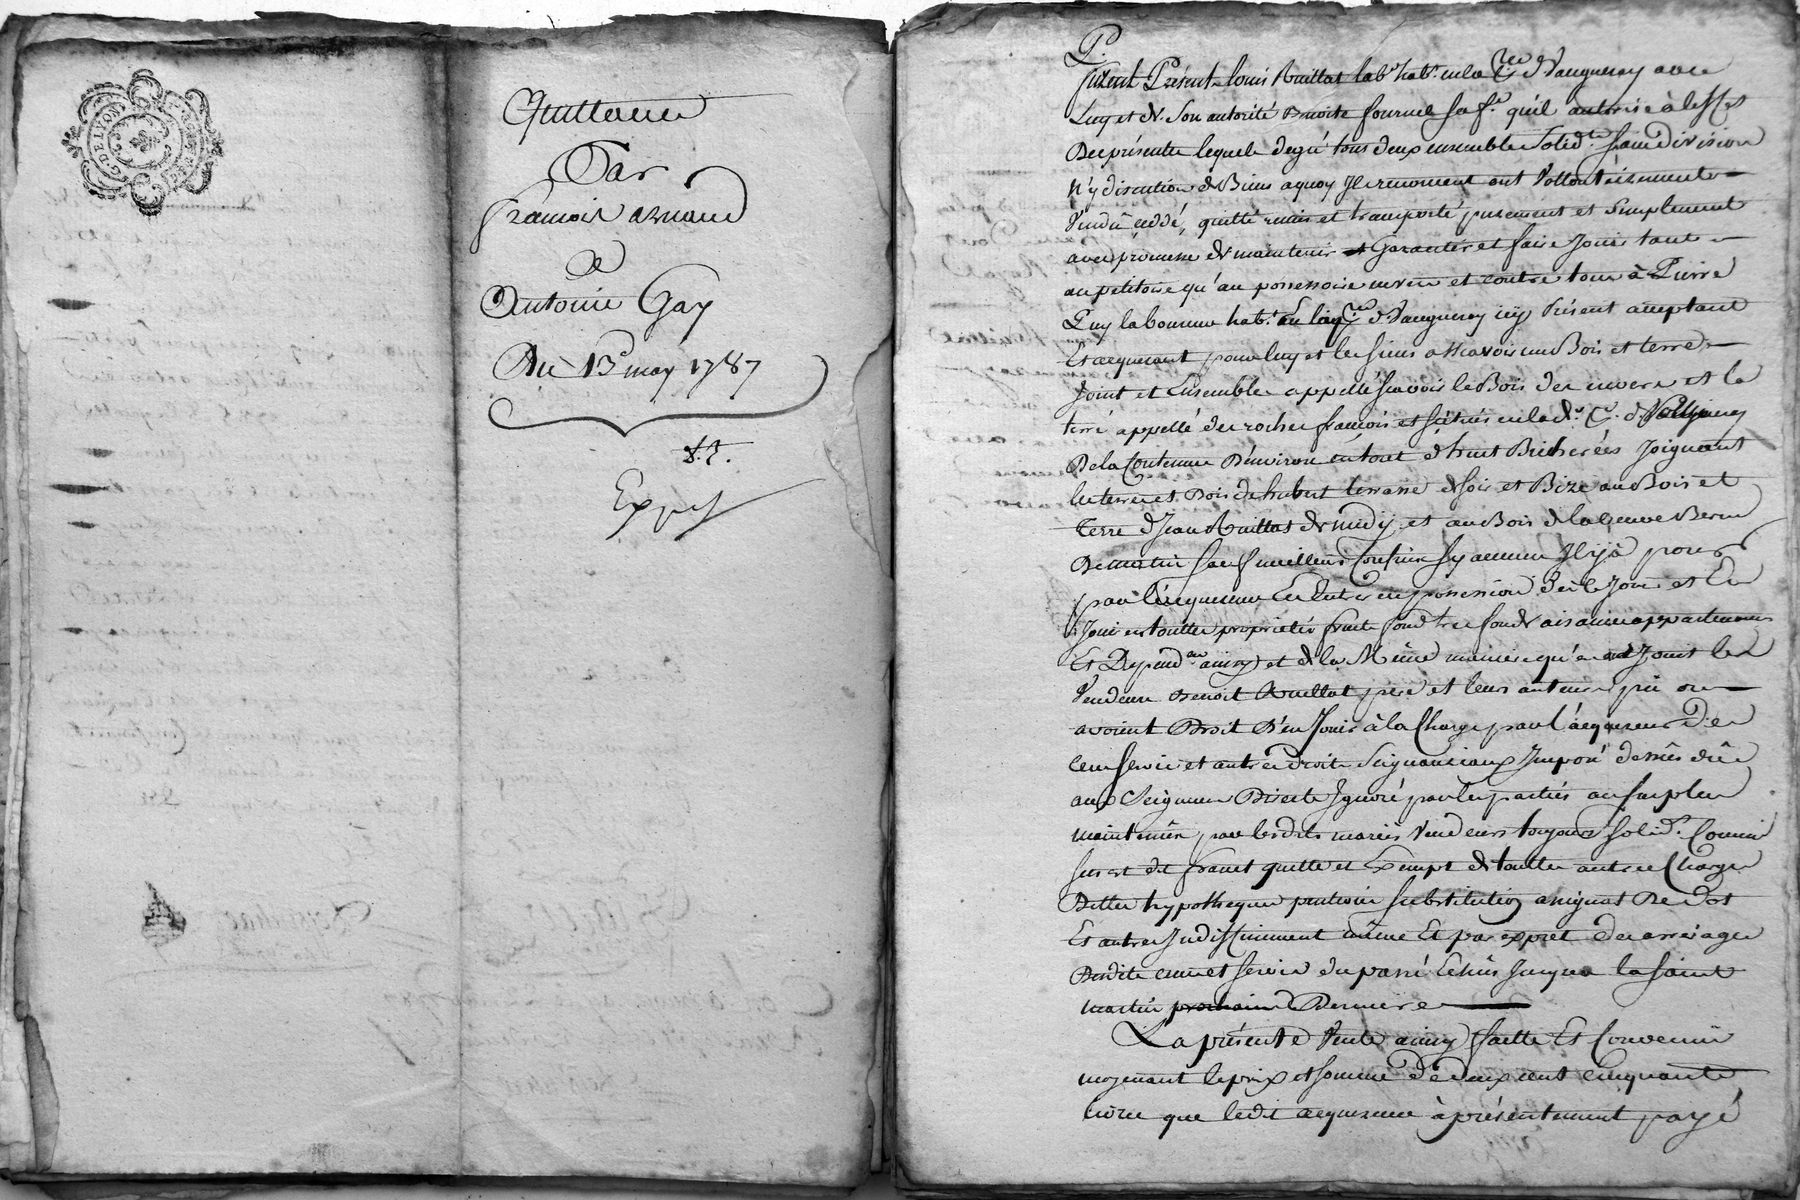 G. DE LYON
Quittance
Par
François arnaud
a
Antoine Gay
Du 13e may 1787
Exped
P.
furent Présent Louis Ruillat lab.r hab.t en la P.sse d'Vaugneray avec
Luy et de Son autorité Benoite fournel sa f.e qu'il autorise à l'effet
Des présentes lequels de gré tous deux ensemble Solid.t sans division
N'y discution de Biens a quoy Ils renoncent ont Vollontairement
Vendu ceddé, quitté remis et transporté purement et Simplement
avec promesse de maintenir et Garantir et faire Jouir tant
au petitoire qu'au possessoire envers et contre tous à Pierre
Puy laboureur hab.t en la P.sse d'Vaugneray icy Présent acceptant
Et acquerant pour luy et les siens assavoir un Bois et terre
Joint et Ensemble appellé scavoir le Bois des envers et la
terre appellé des rocher françois et scitués en la d.e P.sse d'Vaugneray
De la Contenue D'environ en tout de huit Bicherées Joignant
les terre et Bois de hubert terrasse de soir et Bize au Bois et
Terre de Jean Ruillat de midy et au Bois de la veuve
De matin sauf meilleurs Confins sy aucuns Il y à pour
par l'acquereur En Entrer en possession Dès le Jour et En
Jouir en toutte proprieté fruits fond tres fond aisances appartenances
Et Dépend.ces ainsy et de la Même maniere qu'en ont Jouit les
Vendeurs Benoit Ruillat père et leurs auteurs pû ou
avoient Droit D'en Jouir à la Charge par l'acquereur Des
cens servis et autres droits Seigneuriaux Imposé dessus dûs
aux Seigneurs Directe Ignoré par les parties au surplus
maintenües par lesdits mariés Vendeurs toujours solid.t Comme
sus est dit franct quitte et Exempt de touttes autres Charges
Dettes hypotheques pention substitution assignat De Dot
Et autres Indistinctement même Et par exprèt des arrérages
Desdits cens et servis du passé Echûs Jusques la saint
martin prochaine Derniere
La présente Vente ainsy faitte Et Convenüe
moyenant le prix et somme De deux cent cinquante
livres que ledit acquereur à présentement payé